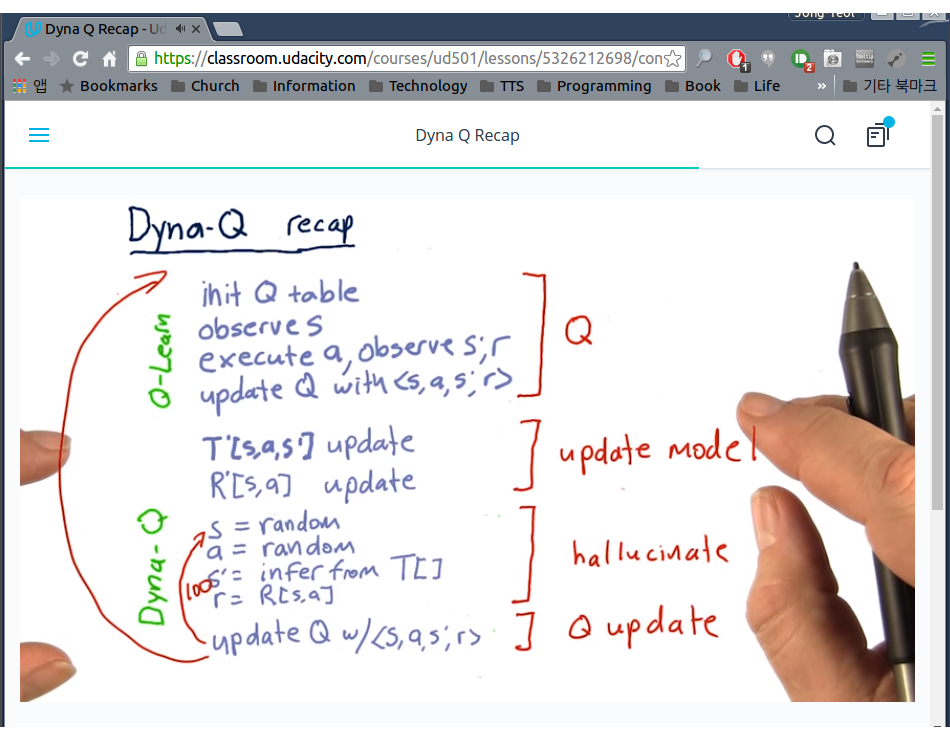 Dyna Q Recap - Ud
Jong Yeol
https://classroom.udacity.com/courses/ud501/lessons/5326212698/con
1
2
앱
Bookmarks
Church
Information
Technology
TTS
Programming
Book
Life
»
기타 북마크
Dyna Q Recap
Dyna-Q recap
init Q table
observe s
execute a, observe s', r
update Q with <s, a, s', r>
Q-Learn
Q
T'[s,a,s'] update
R'[s,a] update
update model
s = random
a = random
s' = infer from T[]
r = R[s,a]
100
hallucinate
Dyna-Q
update Q w/<s, a, s', r>
Q update